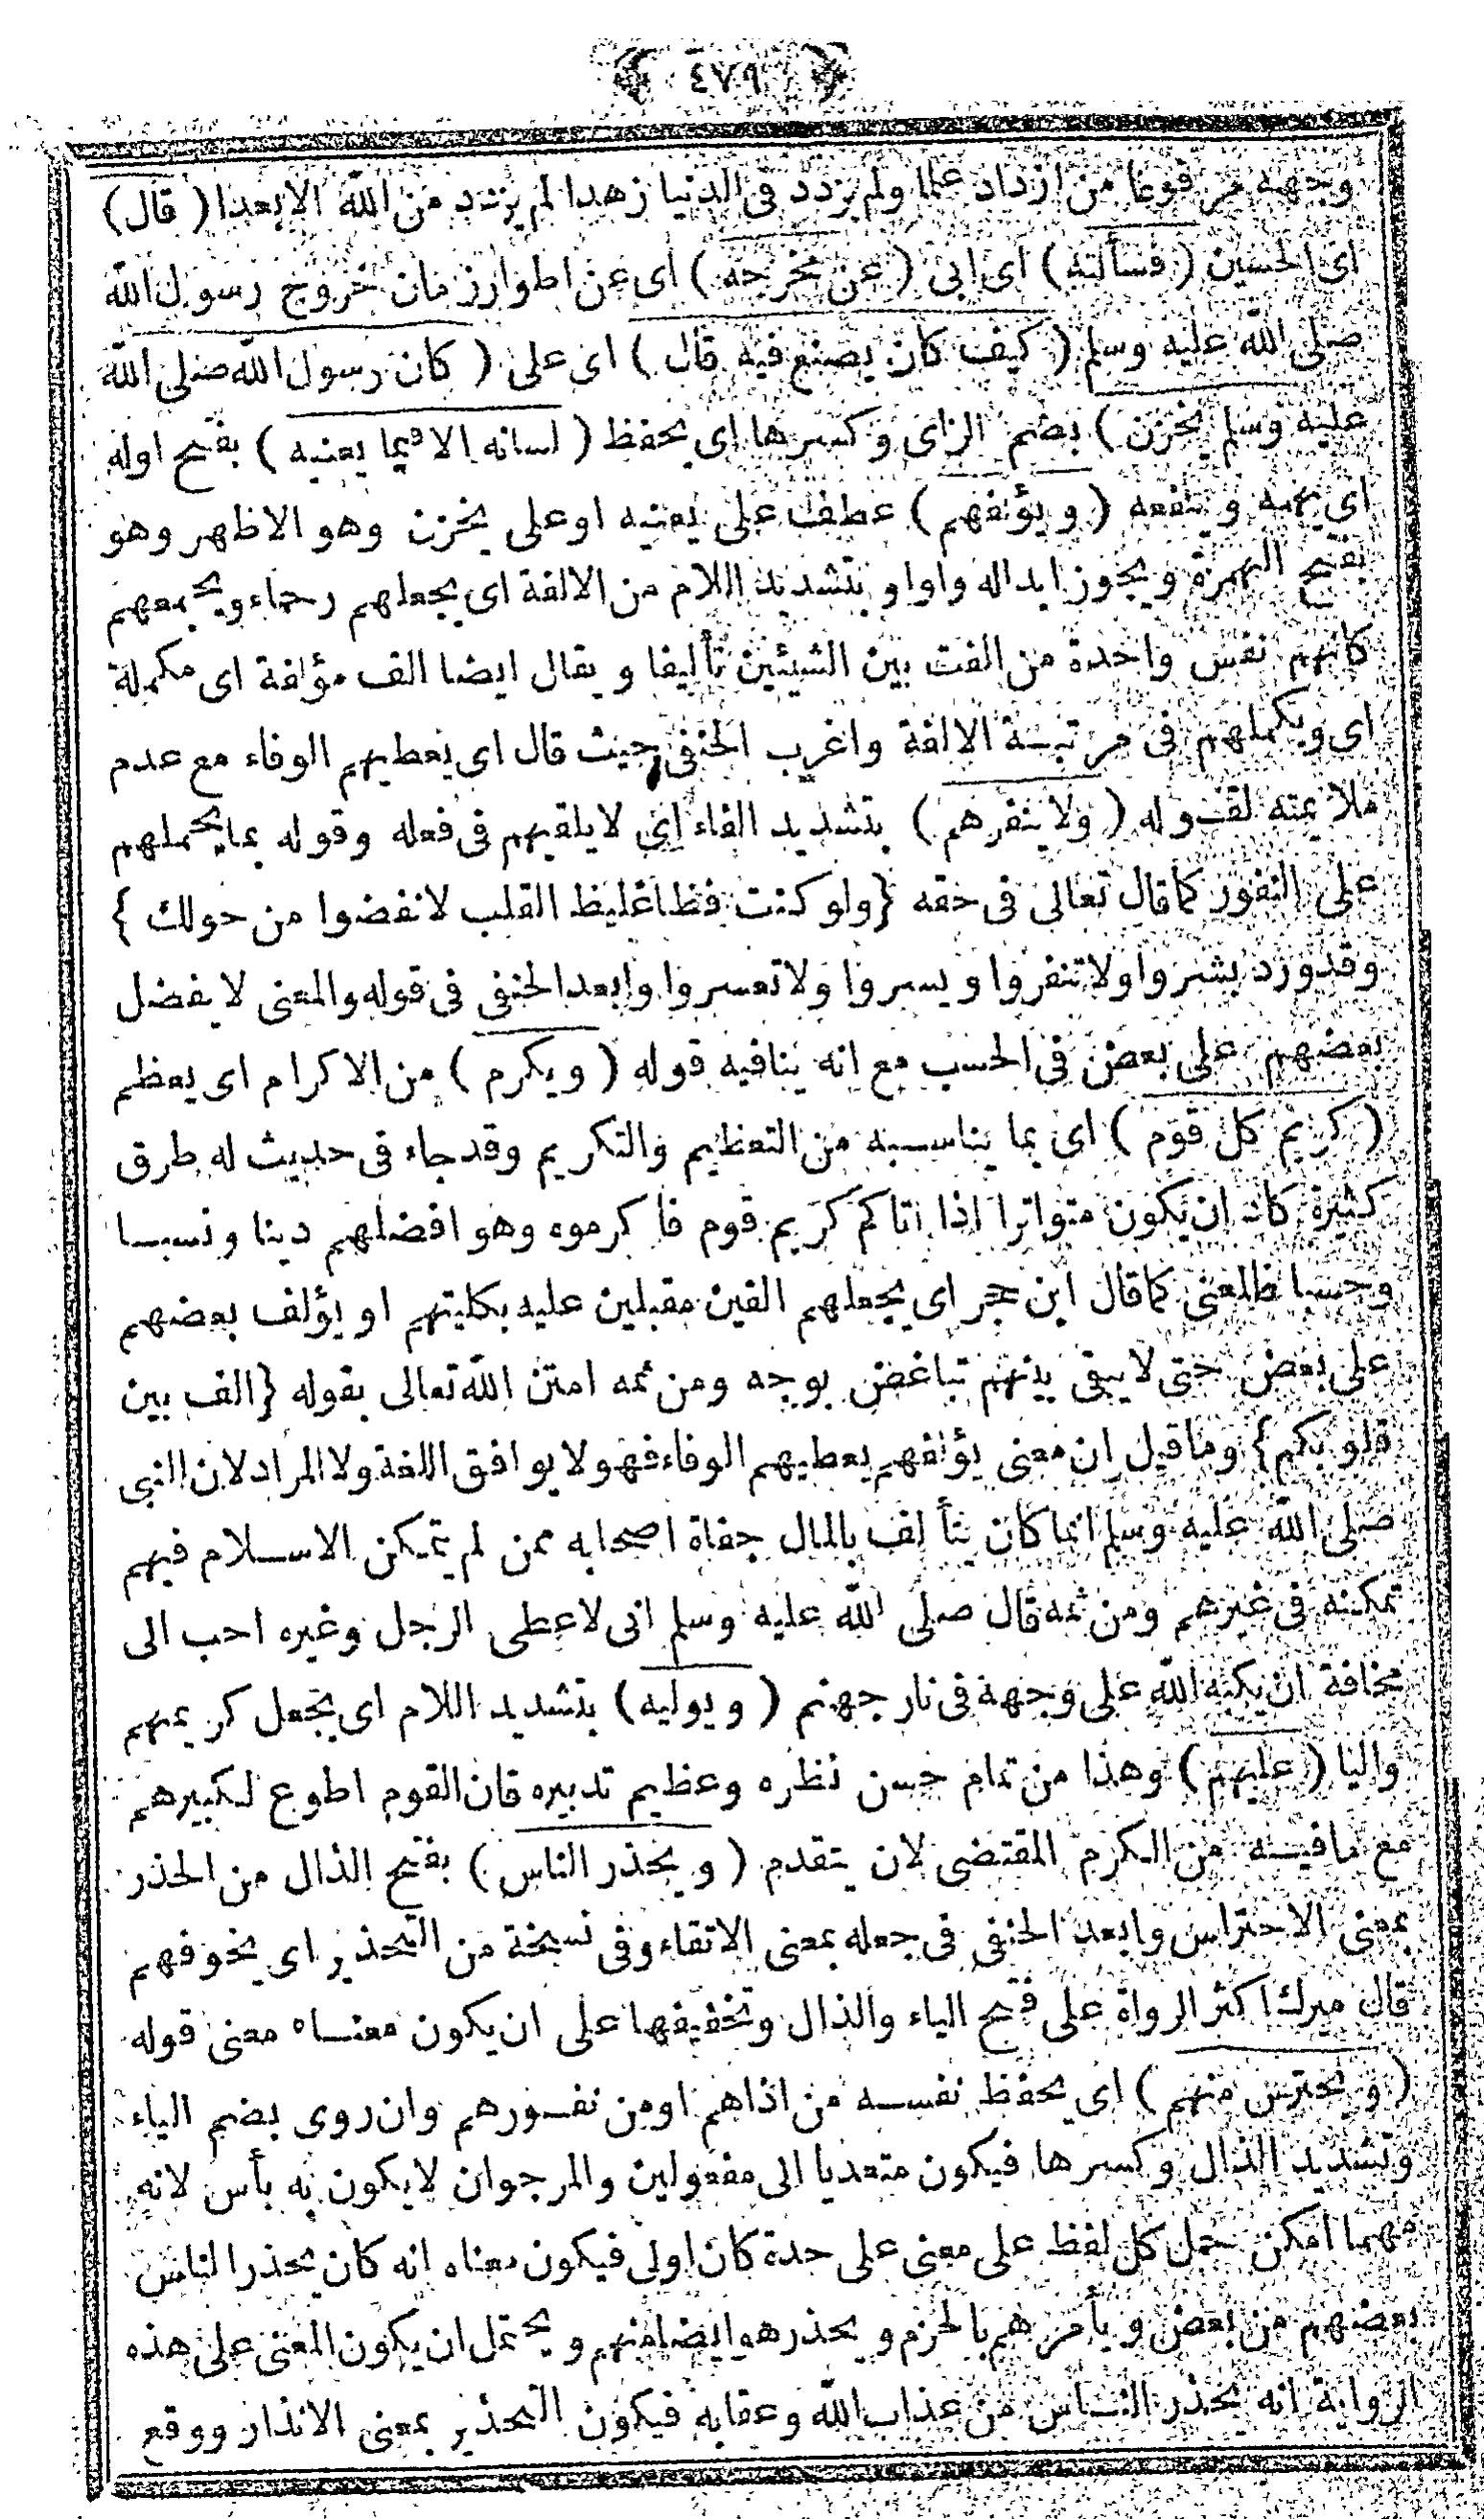 ﴿ ٤٧٩ ﴾
وجهه مرفوعا من ازداد علما ولم يزدد فى الدنيا زهدا لم يزدد من الله الا بعدا ( قال )
اى الحسين ( فسألته ) اى ابى ( عن مخرجه ) اى عن اطوار زمان خروج رسول الله
صلى الله عليه وسلم ( كيف كان يصنع فيه قال ) اى على ( كان رسول الله صلى الله
عليه وسلم يخزن ) بضم الزاى وكسرها اى يحفظ ( لسانه الا فيما يعنيه ) بفتح اوله
اى يهمه وينفعه ( ويؤلفهم ) عطف على يعنيه او على يخزن وهو الاظهر وهو
بفتح الهمزة ويجوز ابداله واوا وبتشديد اللام من الالفة اى يجعلهم رحماء ويجمعهم
كانهم نفس واحدة من الفت بين الشيئين تأليفا ويقال ايضا الف مؤلفة اى مكملة
اى ويكملهم فى مرتبة الالفة واغرب الحنفى حيث قال اى يعطيهم الوفاء مع عدم
ملايمته لقوله ( ولا ينفرهم ) بتشديد الفاء اى لا يلقيهم فى فعله وقوله بما يحملهم
على النفور كما قال تعالى فى حقه { ولو كنت فظا غليظ القلب لانفضوا من حولك }
وقد ورد بشروا ولا تنفروا ويسروا ولا تعسروا وابعد الحنفى فى قوله والمعنى لا يفضل
بعضهم على بعض فى الحسب مع انه ينافيه قوله ( ويكرم ) من الاكرام اى يعظم
( كريم كل قوم ) اى بما يناسبه من التعظيم والتكريم وقد جاء فى حديث له طرق
كثيرة كاد ان يكون متواترا اذا اتاكم كريم قوم فاكرموه وهو افضلهم دينا ونسبا
وحسبا فالمعنى كما قال ابن حجر اى يجعلهم الفين مقبلين عليه بكليتهم او يؤلف بعضهم
على بعض حتى لا يبقى بينهم تباغض بوجه ومن ثمه امتن الله تعالى بقوله { الف بين
قلوبكم } وما قيل ان معنى يؤلفهم يعطيهم الوفاء فهو لا يوافق اللغة ولا المراد لان النبى
صلى الله عليه وسلم انما كان يتألف بالمال جفاة اصحابه ممن لم يتمكن الاسلام فيهم
تمكنه فى غيرهم ومن ثمه قال صلى الله عليه وسلم انى لاعطى الرجل وغيره احب الى
مخافة ان يكبه الله على وجهه فى نار جهنم ( ويوليه ) بتشديد اللام اى يجعل كريمهم
واليا ( عليهم ) وهذا من تمام حسن نظره وعظيم تدبيره فان القوم اطوع لكبيرهم
مع ما فيه من الكرم المقتضى لان يتقدم ( ويحذر الناس ) بفتح الذال من الحذر
بمعنى الاحتراس وابعد الحنفى فى جعله بمعنى الاتقاء وفى نسخة من التحذير اى يخوفهم
قال ميرك اكثر الرواة على فتح الياء والذال وتخفيفها على ان يكون معناه معنى قوله
( ويحترس منهم ) اى يحفظ نفسه من اذاهم او من نفورهم وان روى بضم الياء
وتشديد الذال وكسرها فيكون متعديا الى مفعولين والمرجو ان لا يكون به بأس لانه
مهما امكن حمل كل لفظ على معنى على حدة كان اولى فيكون معناه انه كان يحذر الناس
بعضهم من بعض ويأمرهم بالحزم ويحذر هو ايضا منهم ويحتمل ان يكون المعنى على هذه
الرواية انه يحذر الناس من عذاب الله وعقابه فيكون التحذير بمعنى الانذار ووقع